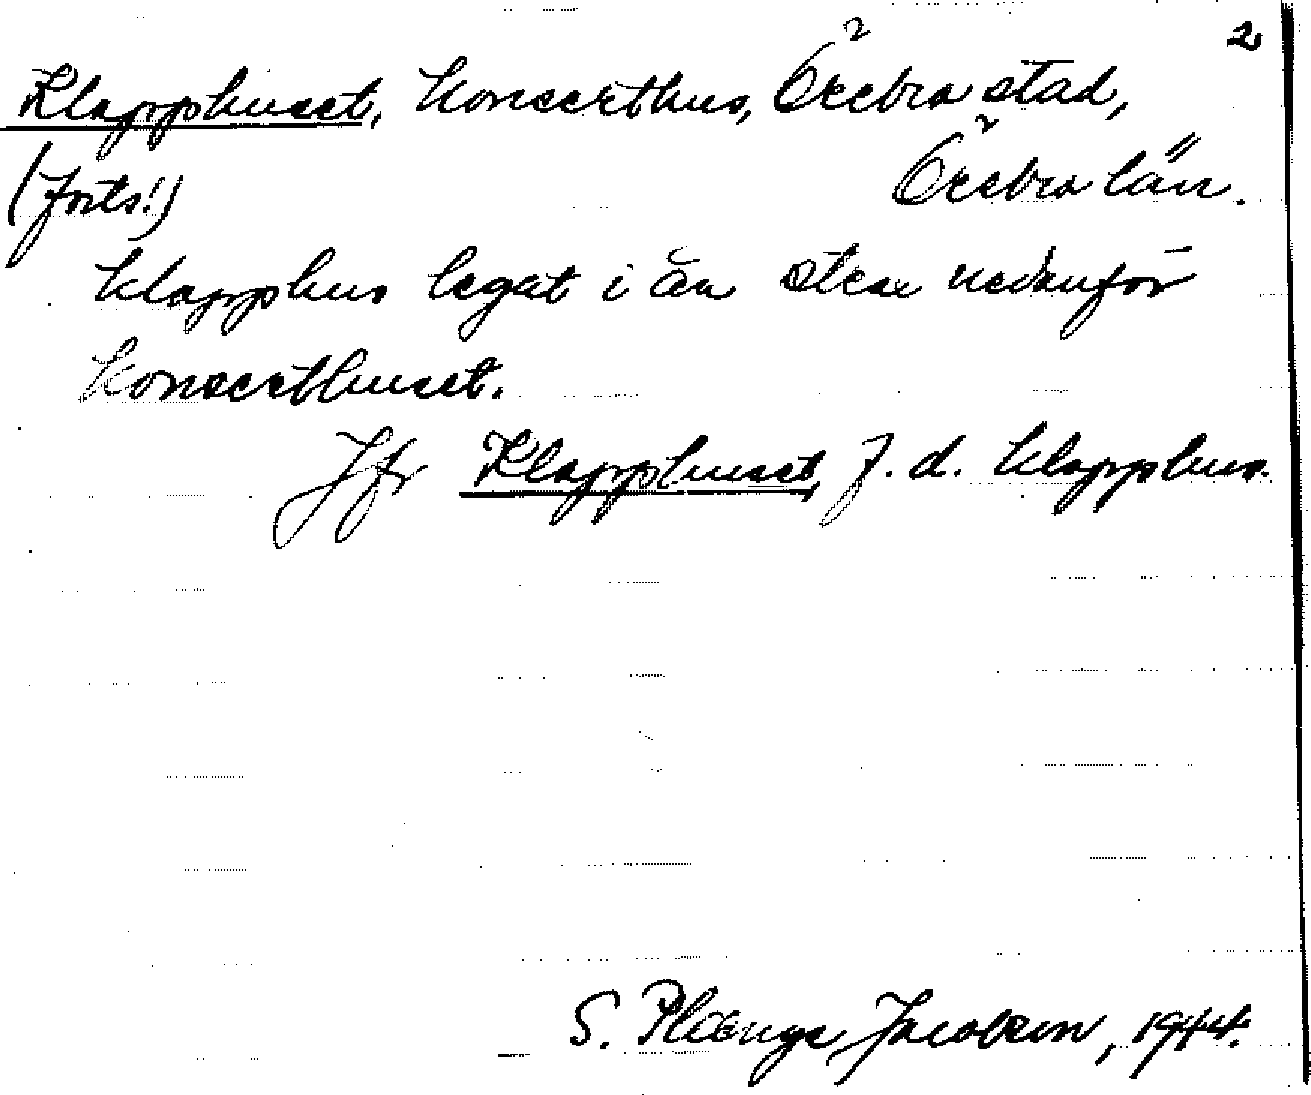 2
Klapphuset, konserthus, Örebro stad,
(forts!) Örebro län.
klapphus legat i ån strax nedanför
konserthuset.
Jfr Klapphuset, f. d. klapphus.
S. Plænge Jacobson, 1944.